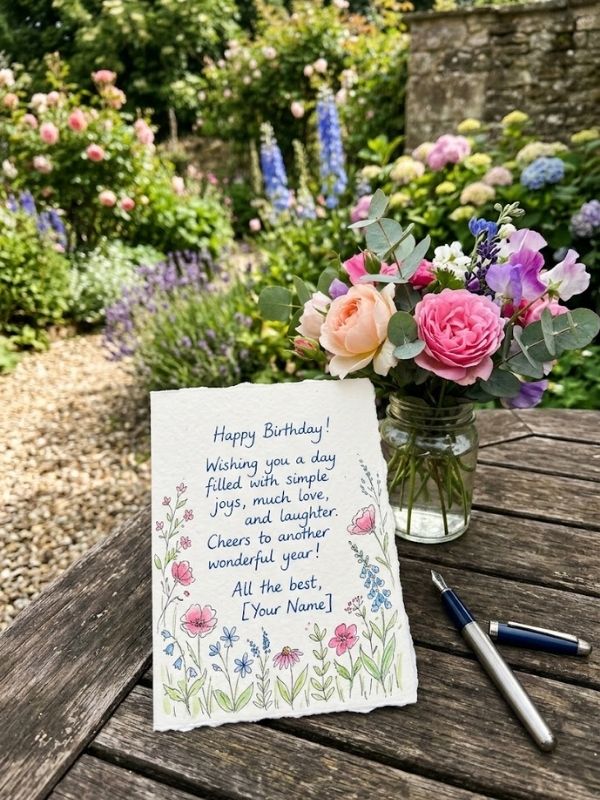 Happy Birthday!
Wishing you a day
filled with simple
joys, much love,
and laughter.
Cheers to another
wonderful year!
All the best,
[Your Name]